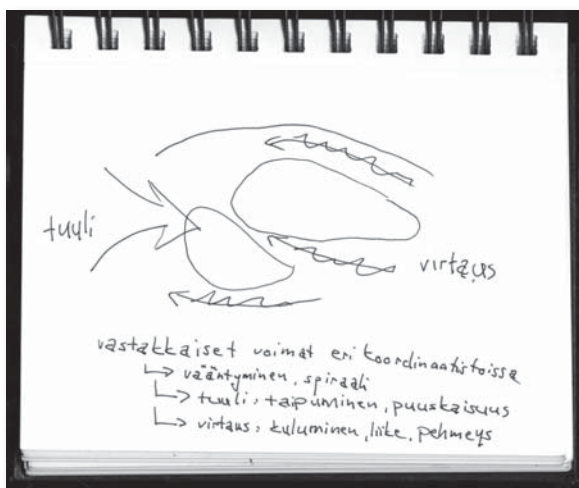 tuuli
virtaus
vastakkaiset voimat eri koordinaatistoissa
↳ vääntyminen, spiraali
↳ tuuli: taipuminen, puuskaisuus
↳ virtaus: kuluminen, liike, pehmeys